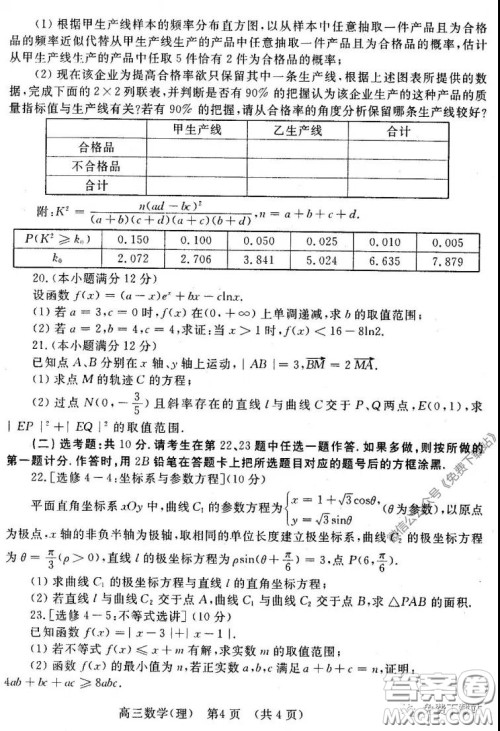 (1) 根据甲生产线样本的频率分布直方图,以从样本中任意抽取一件产品且为合格
品的频率近似代替从甲生产线生产的产品中任意抽取一件产品且为合格品的概率,估计
从甲生产线生产的产品中任取5件恰有2件为合格品的概率;
(2) 现在该企业为提高合格率欲只保留其中一条生产线,根据上述图表所提供的数
据,完成下面的2×2列联表,并判断是否有90%的把握认为该企业生产的这种产品的质
量指标值与生产线有关?若有90%的把握,请从合格率的角度分析保留哪条生产线较好?
甲生产线 乙生产线 合计
合格品
不合格品
合计
附:K²=n(ad-bc)²/((a+b)(c+d)(a+c)(b+d)),n=a+b+c+d.
P(K²≥k₀) 0.150 0.100 0.050 0.025 0.010 0.005
k₀ 2.072 2.706 3.841 5.024 6.635 7.879
20.(本小题满分12分)
设函数 f(x)=(a-x)eˣ+bx-clnx.
(1) 若 a=3,c=0时,f(x)在(0,+∞)上单调递减,求b的取值范围;
(2) 若 a=2,b=4,c=4,求证:当 x>1时,f(x)<16-8ln2.
21.(本小题满分12分)
已知点A、B分别在x轴、y轴上运动,|AB|=3,BM=2MA.
(1) 求点M的轨迹C的方程;
(2) 过点N(0,-3/5)且斜率存在的直线l与曲线C交于P、Q两点,E(0,1),求
|EP|²+|EQ|²的取值范围.
(二)选考题:共10分.请考生在第22、23题中任选一题作答.如果多做,则按所做的
第一题计分.作答时,用2B铅笔在答题卡上把所选题目对应的题号后的方框涂黑.
22.[选修4-4:坐标系与参数方程](10分)
平面直角坐标系xOy中,曲线C₁的参数方程为{x=1+√3cosθ, y=√3sinθ,(θ为参数),以原点
为极点,x轴的非负半轴为极轴,取相同的单位长度建立极坐标系,曲线C₂的极坐标方程
为θ=π/3(ρ>0),直线l的极坐标方程为ρsin(θ+π/6)=3,点P(6,π/6).
(1) 求曲线C₁的极坐标方程与直线l的直角坐标方程;
(2) 若直线l与曲线C₂交于点A,曲线C₁与曲线C₂交于点B,求△PAB的面积.
23.[选修4-5:不等式选讲](10分)
已知函数 f(x)=|x-3|+|x-1|.
(1) 若不等式 f(x)≤x+m有解,求实数m的取值范围;
(2) 函数 f(x)的最小值为n,若正实数a,b,c满足a+b+c=n,证明:
4ab+bc+ac≥8abc.
高三数学(理) 第4页 (共4页)